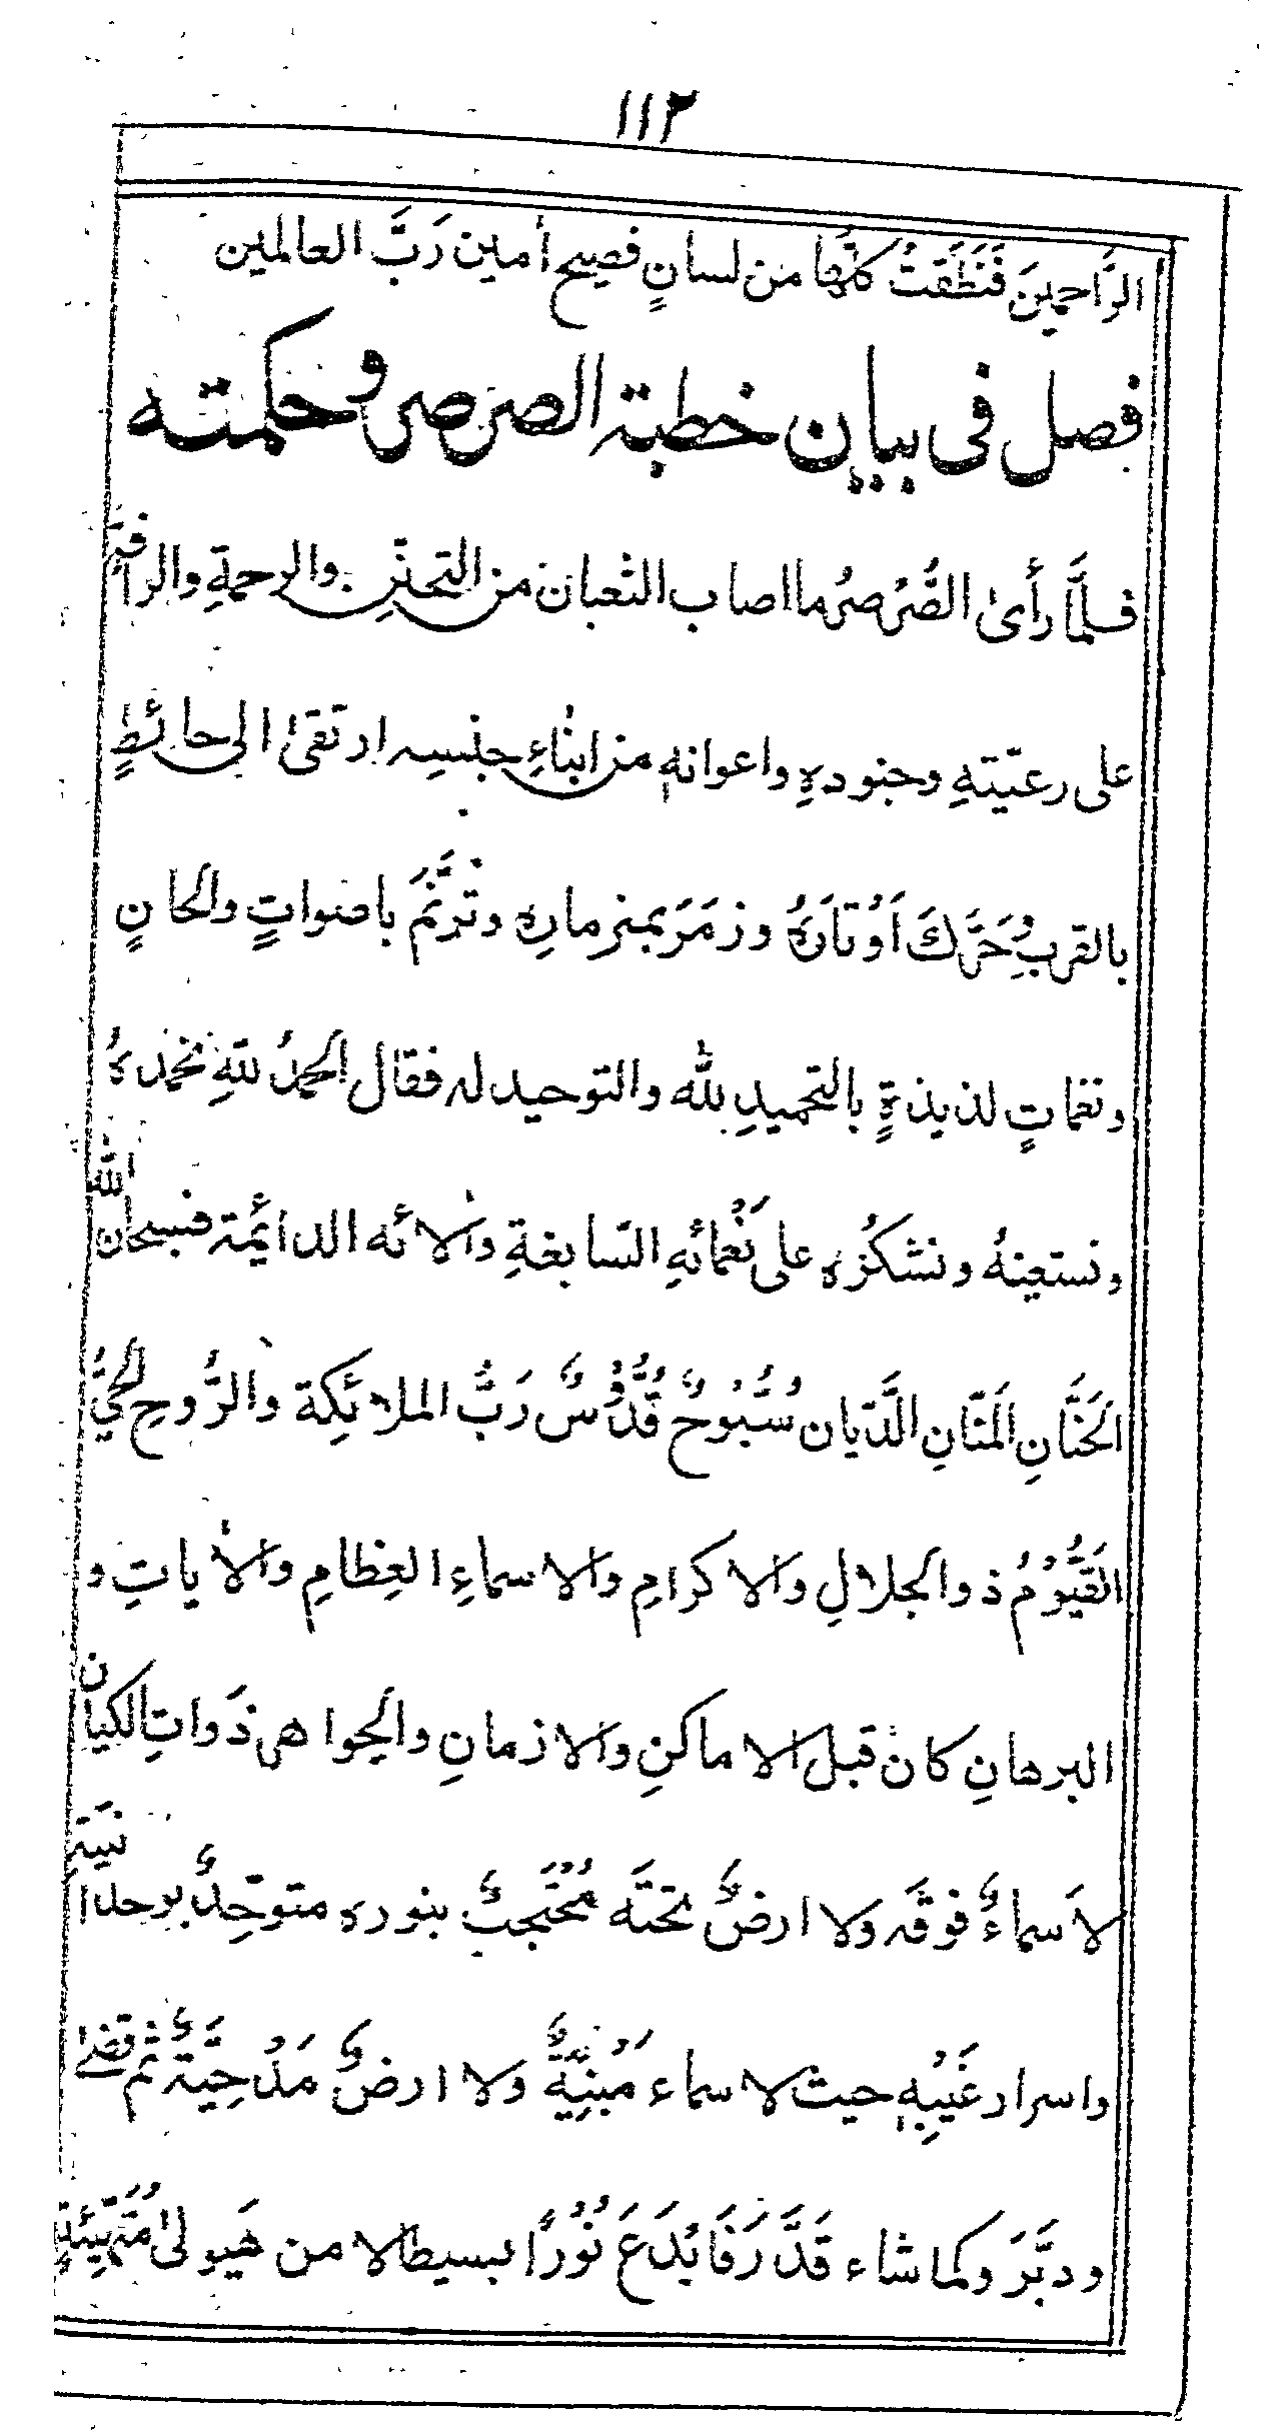 ١١٢
الرَّاحمينَ فَنَطَقَتْ كلّهَا من لسانٍ فصيح أمين رَبَّ العالمين
فصل فى بيان خطبة الصرصر وحكمته
فلمَّا رأىٰ الصُّرْصرُ ما اصاب الثعبان من التحنّنِ والرحمةِ والرافةِ
على رعيّتهِ وجنودهِ واعوانهٖ من ابناءِ جنسه ارتقىٰ الى حائطٍ
بالقربِ وَحَرَّكَ اَوْتَارَهُ وزمَرَ بمزمارِه وترنَّمَ باصواتٍ والحانٍ
ونغماتٍ لذيذةٍ بالتحميدِ للّٰه والتوحيد له فقال الحمدُ للّٰهِ نحمدهُ
ونستعينهُ ونشكرُه على نَعْمائهِ السّابغةِ واٰلائه الدائمة فسبحان اللّٰه
الحَنَّانِ المَنّانِ الدَّيّان سُبُّوحٌ قُدُّوْسٌ رَبُّ الملائكة والرُّوحِ الحيُّ
القَيُّوْمُ ذو الجلالِ والاكرامِ والاسماءِ العِظامِ والاٰياتِ و
البرهانِ كان قبل الاماكنِ والازمانِ والجواهر ذَواتِ الكيان
لاَسماءٌ فوقَه ولا ارضٌ تحتَه مُحْتَجبٌ بنوره متوحِّدٌ بوحدانيّتهٖ
واسرار غَيْبِهٖ حيث لا سماء مَبْنِيَّةٌ ولا ارضٌ مَدْحِيَّةٌ ثم قضىٰ
ودبَّرَ وكما شاء قَدَّرَ فَابْدَعَ نُوْرًا بسيطا لا من هَيولىٰ مُتَهيّئةٍ